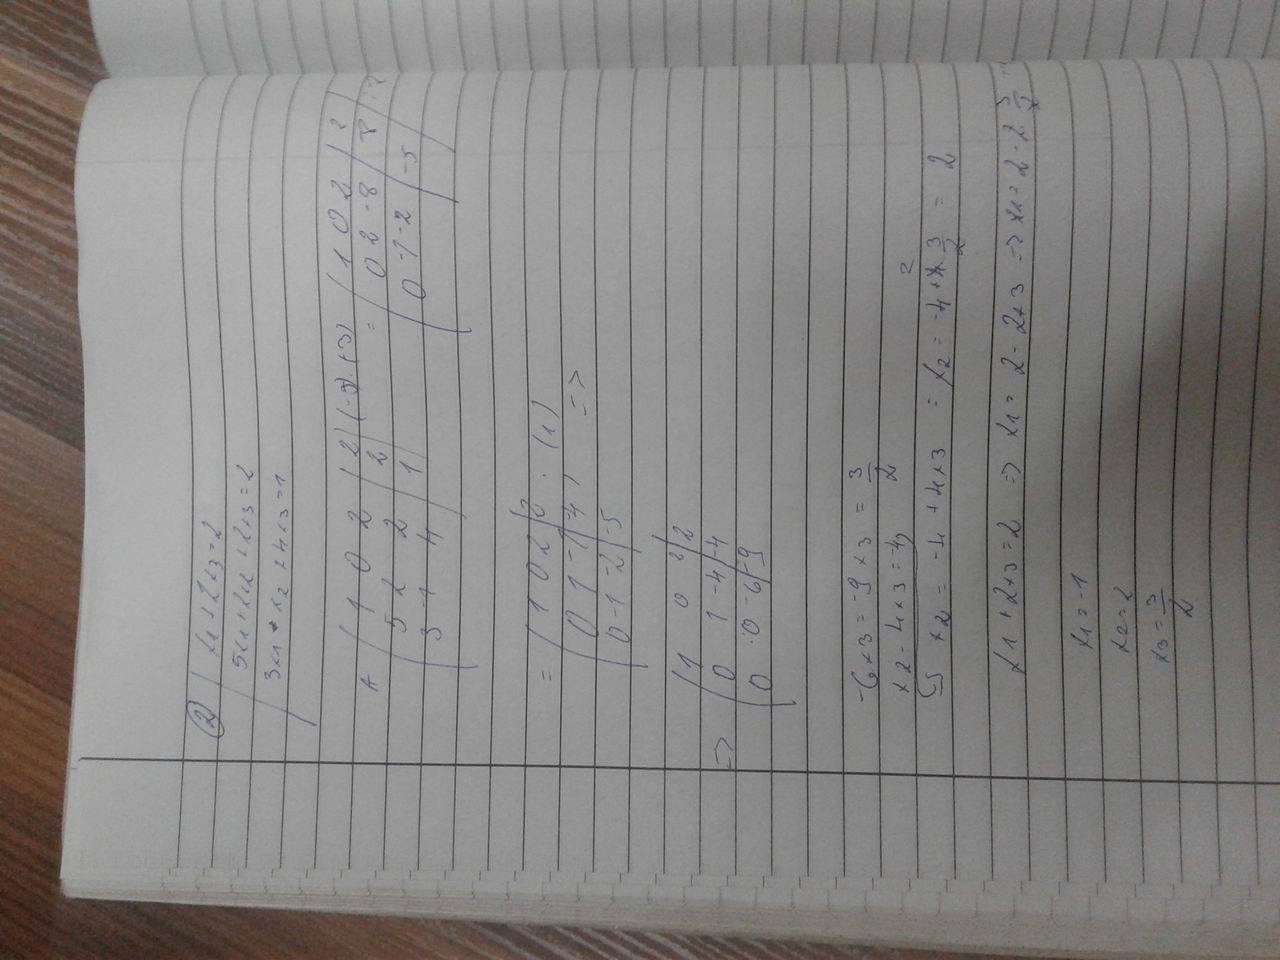 ② x1 + 2x3 = 2
5x1 + 2x2 + 2x3 = 2
3x1 - x2 + 4x3 = 1
A ( 1 0 2 | 2 ) (-5) · (-3) = ( 1 0 2 | 2
5 2 2 | 2 0 2 -8 | -8 : 2
3 -1 4 | 1 0 -1 -2 | -5
= ( 1 0 2 | 2 · (1)
0 1 -4 | -4 ) =>
0 -1 -2 | -5
=> ( 1 0 2 | 2
0 1 -4 | -4
0 0 -6 | -9
-6x3 = -9 x3 = 3/2
x2 - 4x3 = -4
x2 = -4 + 4x3 = x2 = -4 + 4 · 3/2 = 2
x1 + 2x3 = 2 => x1 = 2 - 2x3 => x1 = 2 - 2 · 3/2
x1 = -1
x2 = 2
x3 = 3/2